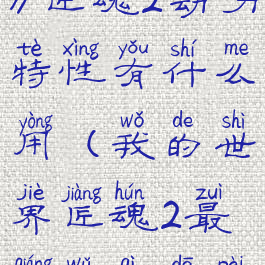 //匠魂2动力
tè xìng yǒu shí me
特性有什么
yòng wǒ de shì
用(我的世
jiè jiàng hún zuì
界匠魂2最
qiáng wǔ qì dō pèi